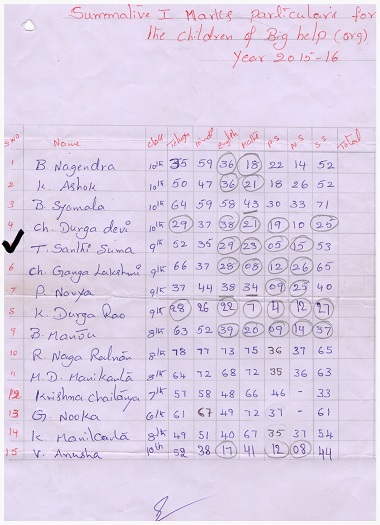 Summative I Marks particulars for
the children of Big help (org)
Year 2015-16
S.NO Name class Telugu Hindi English Maths P.S N.S S.S Total
1 B. Nagendra 10th 35 59 36 18 22 14 52
2 K. Ashok 10th 50 47 36 21 18 26 52
3 B. Syamala 10th 64 59 58 43 30 33 71
4 Ch. Durga devi 10th 29 37 38 21 19 10 25
5 T. Santhi Suma 9th 52 35 29 23 05 15 53
6 Ch. Ganga Lakshmi 9th 66 37 28 08 12 26 65
7 P. Navya 9th 37 44 38 34 09 25 40
8 K. Durga Rao 9th 28 26 22 7 4 12 27
9 B. 8th 63 52 39 20 09 14 37
10 R. Naga 8th 78 77 73 75 36 37 65
11 M.D. Manikanta 8th 64 72 68 72 35 36 63
12 Krishna chaitanya 7th 57 58 48 66 46 - 33
13 G. Nooka 6th 61 67 49 72 37 - 61
14 K. Manikanta 8th 49 51 40 67 35 37 54
15 V. Anusha 10th 52 38 17 41 12 08 44